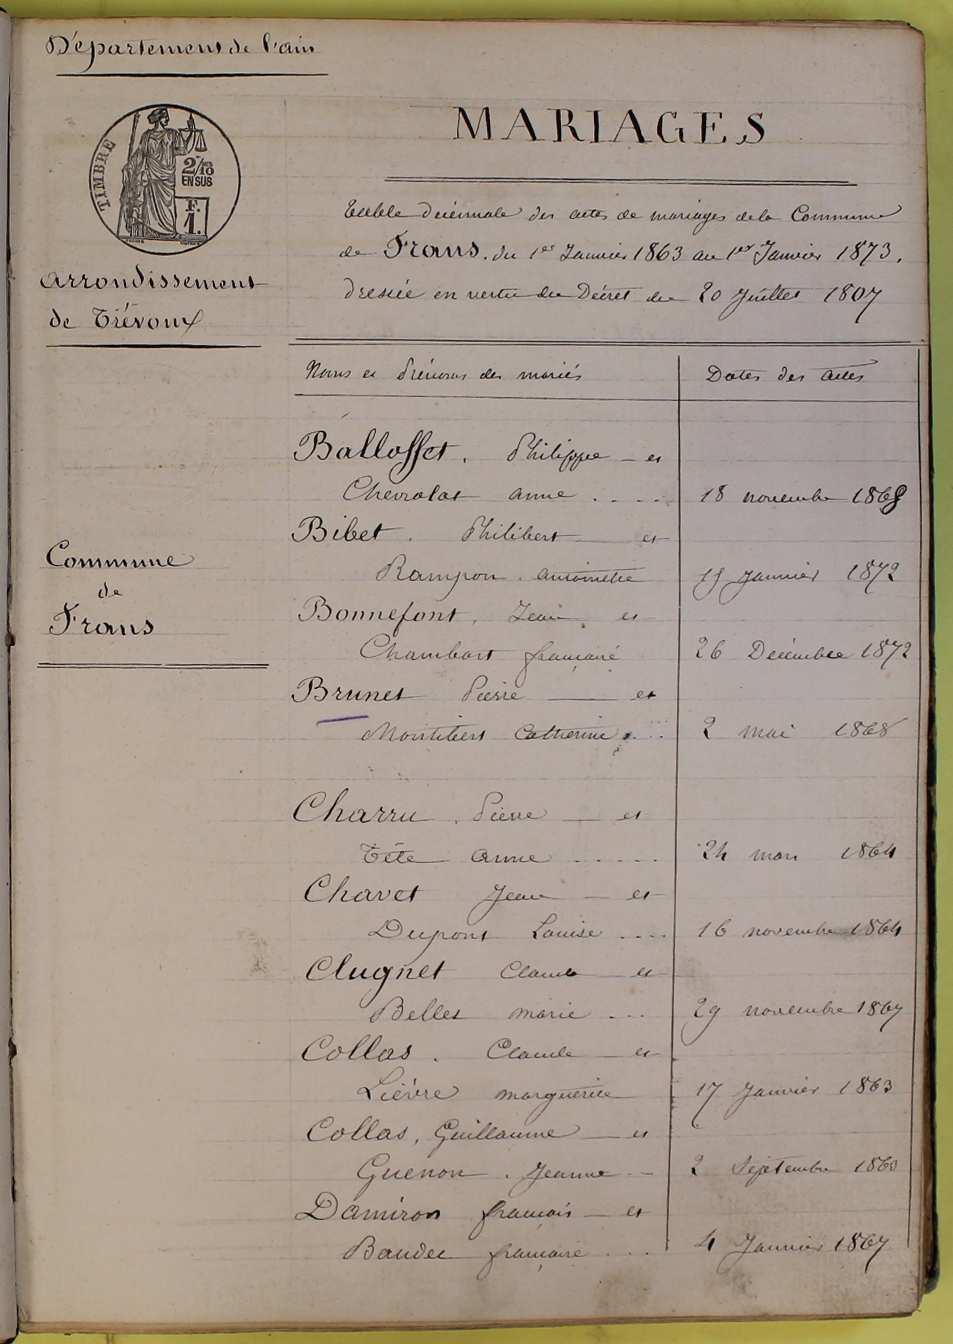 Département de l'ain
TIMBRE
2/10
EN SUS
F.
1.
Arrondissement
de Trévoux
Commune
de
Frans
MARIAGES
Table décennale des actes de mariages de la Commune
de Frans, du 1er Janvier 1863 au 1er Janvier 1873,
dressée en vertu du Décret du 20 Juillet 1807
Noms et Prénoms des mariés
Dates des actes
Balloffet, Philippe et
Chevrolat anne .... 18 novembre 1868
Bibet, Philibert et
Rampon, antoinette Janvier 1872
Bonnefont, Jean et
Chambart françoise 26 Décembre 1872
Brunet Pierre et
Catherine 2 mai 1868
Charru, Pierre et
Tête anne ...... 24 mars 1864
Chavet Jean et
Dupont Louise .... 16 novembre 1864
Clugnet Claude et
Belles marie ... 29 novembre 1867
Collas, Claude et
Lièvre marguerite 17 Janvier 1863
Collas, Guillaume et
Guenon, Jeanne 2 Septembre
Damiron francois et
françoise ... 4 Janvier 1867